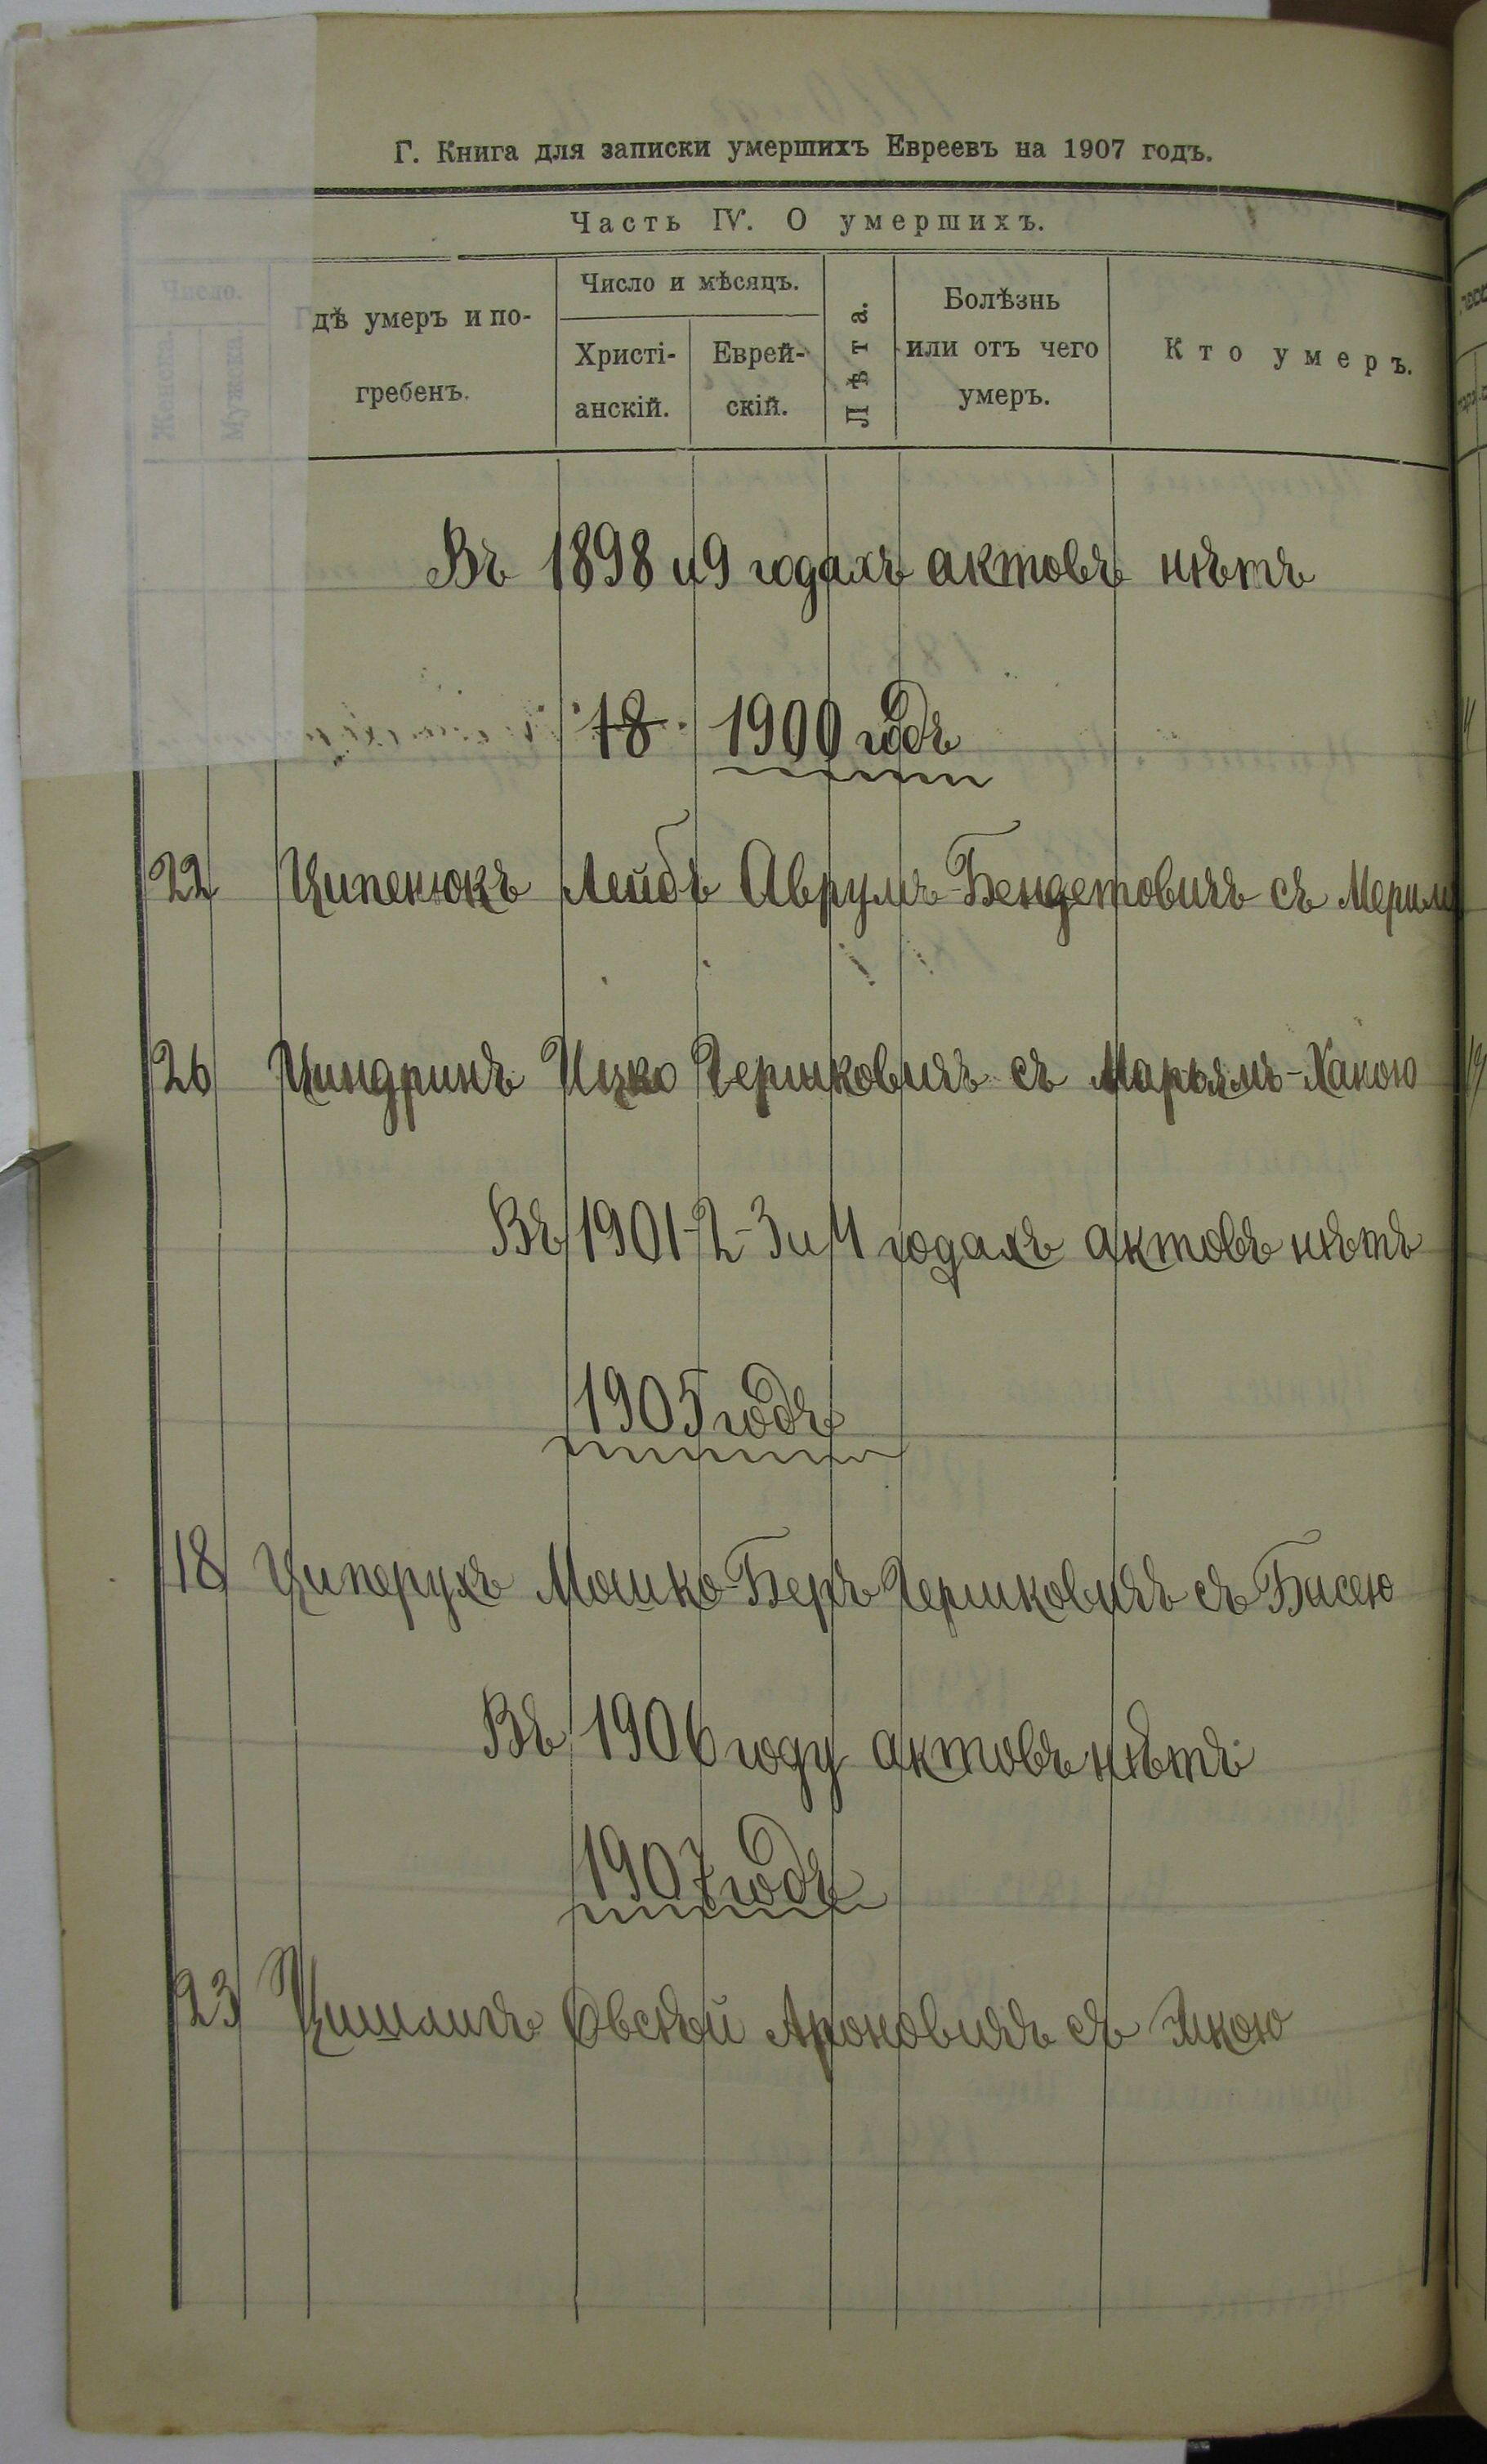 Г. Книга для записки умершихъ Евреевъ на 1907 годъ.
Часть IV. О умершихъ.
Число.
Женска.
Мужска.
Гдѣ умеръ и по-
гребенъ.
Число и мѣсяцъ.
Христі-
анскій.
Еврей-
скій.
Лѣта.
Болѣзнь
или отъ чего
умеръ.
Кто умеръ.
Въ 1898 и 9 годахъ актовъ нѣтъ
18 1900 годъ
22 Ципенюкъ Лейбъ Аврумъ-Бендетовичъ съ
26 Циндринъ Ицко Гершковичъ съ Марьямъ-Ханою
Въ 1901-2-3 и 4 годахъ актовъ нѣтъ
1905 годъ
18 Циперухъ Мошко-Беръ Гершковичъ съ Бисею
Въ 1906 году актовъ нѣтъ
1907 годъ
23 Овсѣй Ароновичъ съ